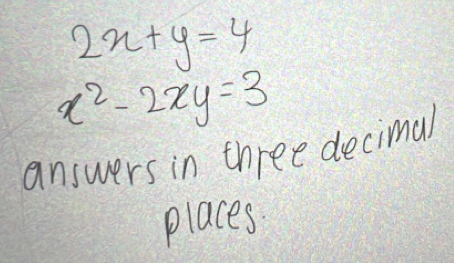 2x+y=4
x²-2xy=3
answers in three decimal
places.